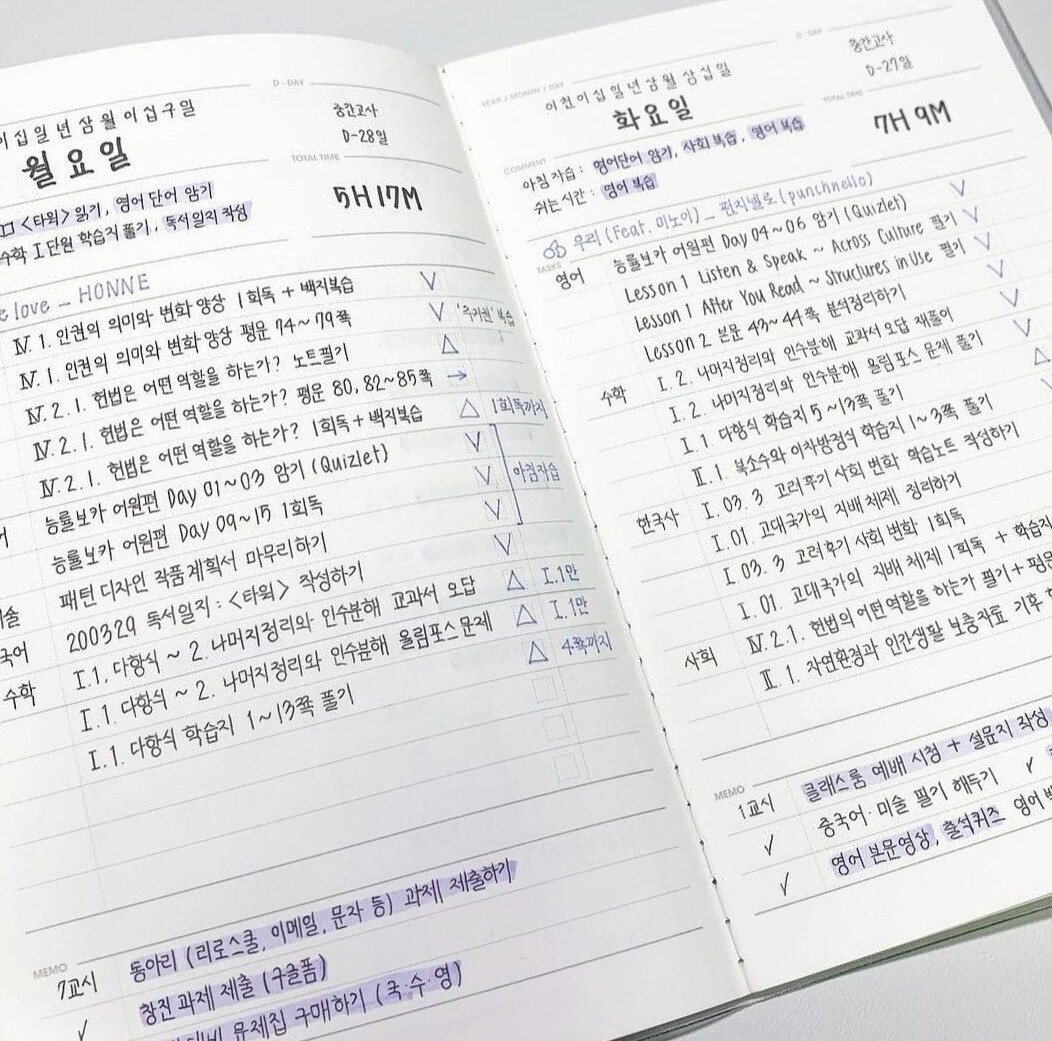 D - DAY
이십일년삼월이십구일
중간고사
D-28일
월요일
TOTAL TIME
5H 17M
<타워> 읽기, 영어 단어 암기
수학 I 단원 학습지 풀기, 독서일지 작성
love - HONNE
Ⅳ. 1. 인권의 의미와 변화 양상 1회독 + 백지복습 V
Ⅳ. 1. 인권의 의미와 변화 양상 평문 74~79쪽 V '주거권' 복습
Ⅳ. 2. 1. 헌법은 어떤 역할을 하는가? 노트필기 △
Ⅳ. 2. 1. 헌법은 어떤 역할을 하는가? 평문 80, 82~85쪽 →
Ⅳ. 2. 1. 헌법은 어떤 역할을 하는가? 1회독 + 백지복습 △ 1회독까지
능률보카 어원편 Day 01~03 암기 (Quizlet) V
능률보카 어원편 Day 09~15 1회독 V 아침자습
패턴 디자인 작품계획서 마무리하기 V
국어 200329 독서일지 : <타워> 작성하기 V
수학 I.1. 다항식 ~ 2. 나머지정리와 인수분해 교과서 오답 △ I.1만
I.1. 다항식 ~ 2. 나머지정리와 인수분해 올림포스 문제 △ I.1만
I.1. 다항식 학습지 1~13쪽 풀기 △ 4쪽까지
MEMO
7교시 동아리 (리로스쿨, 이메일, 문자 등) 과제 제출하기
✓ 창진 과제 제출 (구글폼)
문제집 구매하기 (국·수·영)
YEAR / MONTH / DAY
D - DAY
이천이십일년삼월삼십일
중간고사
D-27일
화요일
TOTAL TIME
7H 9M
COMMENT
아침 자습 : 영어단어 암기, 사회 복습, 영어 복습
쉬는 시간 : 영어 복습
우리 (Feat. 미노이) - 펀치넬로 (punchnello)
TASKS
영어 능률보카 어원편 Day 04~06 암기 (Quizlet) V
Lesson 1 Listen & Speak ~ Across Culture 필기 V
Lesson 1 After You Read ~ Structures in Use 필기 V
Lesson 2 본문 43~44쪽 분석정리하기 V
수학 I. 2. 나머지정리와 인수분해 교과서 오답 재풀이 V
I. 2. 나머지정리와 인수분해 올림포스 문제 풀기 V
I. 1. 다항식 학습지 5~13쪽 풀기 △
Ⅱ. 1. 복소수와 이차방정식 학습지 1~3쪽 풀기
한국사 I. 03. 3 고려후기 사회 변화 학습노트 작성하기
I. 01. 고대국가의 지배 체제 정리하기
I. 03. 3 고려후기 사회 변화 1회독
I. 01. 고대국가의 지배 체제 1회독 + 학습지
사회 Ⅳ. 2. 1. 헌법의 어떤 역할을 하는가 필기 + 평문
Ⅱ. 1. 자연환경과 인간생활 보충자료 기후
MEMO
1교시 클래스룸 예배 시청 + 설문지 작성
✓ 중국어·미술 필기 해두기 ✓
✓ 영어 본문영상, 출석퀴즈 영어